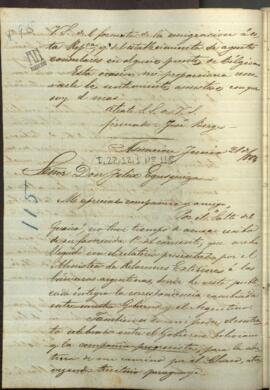 V.S. del fomento de la emigracion á es-
ta Repca. y el establecimiento de agentes
consulares en algunos puertos de Belgica.
Esta ocasion me proporciona reno-
varle los sentimientos amistosos con que
soy de mas
atento S. S. de V. S.
firmado José Berges
Asuncion Junio 21 de
I, 22, 12, 1 Nº 115
115
Señor Don Felix Egusquiza
Mi apreciado compatriota y amigo,
Por el
Guairá, no tuve tiempo de acusar recibo
de su favorecida del corriente, que me ha
llegado con el relatorio presentado por el
Ministro de relaciones Exteriores á las
Cámaras argentinas, donde he visto publi-
cada integra la correspondencia cambiada
entre nuestro Gobierno y el Argentino.
Tambien el contrato
celebrado entre el Gobierno boliviano
y la compañia para la aber-
tura de un camino por el Chaco, atra-
vesando territorio paraguayo